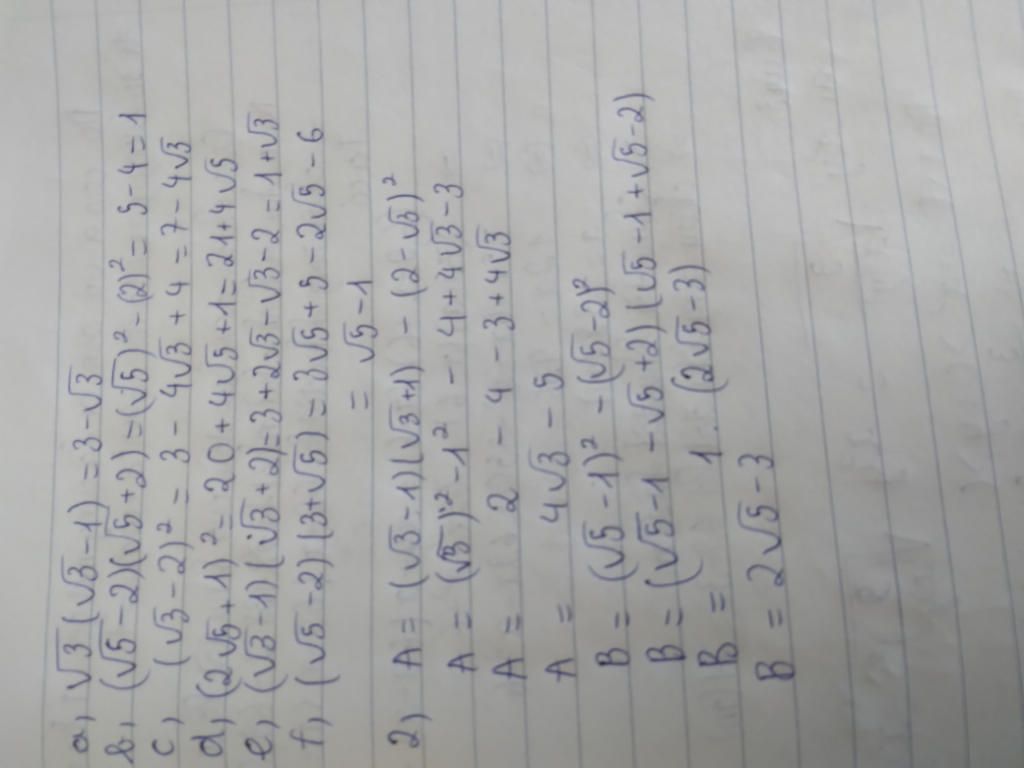 a, √3(√3-1) = 3-√3
b, (√5-2)(√5+2) = (√5)² - (2)² = 5-4 = 1
c, (√3-2)² = 3 - 4√3 + 4 = 7 - 4√3
d, (2√5+1)² = 20 + 4√5 + 1 = 21 + 4√5
e, (√3-1)(√3+2) = 3 + 2√3 - √3 - 2 = 1 + √3
f, (√5-2)(3+√5) = 3√5 + 5 - 2√5 - 6
= √5 - 1
2, A = (√3-1)(√3+1) - (2-√3)²
A = (√3)² - 1² - 4 + 4√3 - 3
A = 2 - 4 - 3 + 4√3
A = 4√3 - 5
B = (√5-1)² - (√5-2)²
B = (√5-1 - √5+2)(√5-1+√5-2)
B = 1 . (2√5-3)
B = 2√5-3